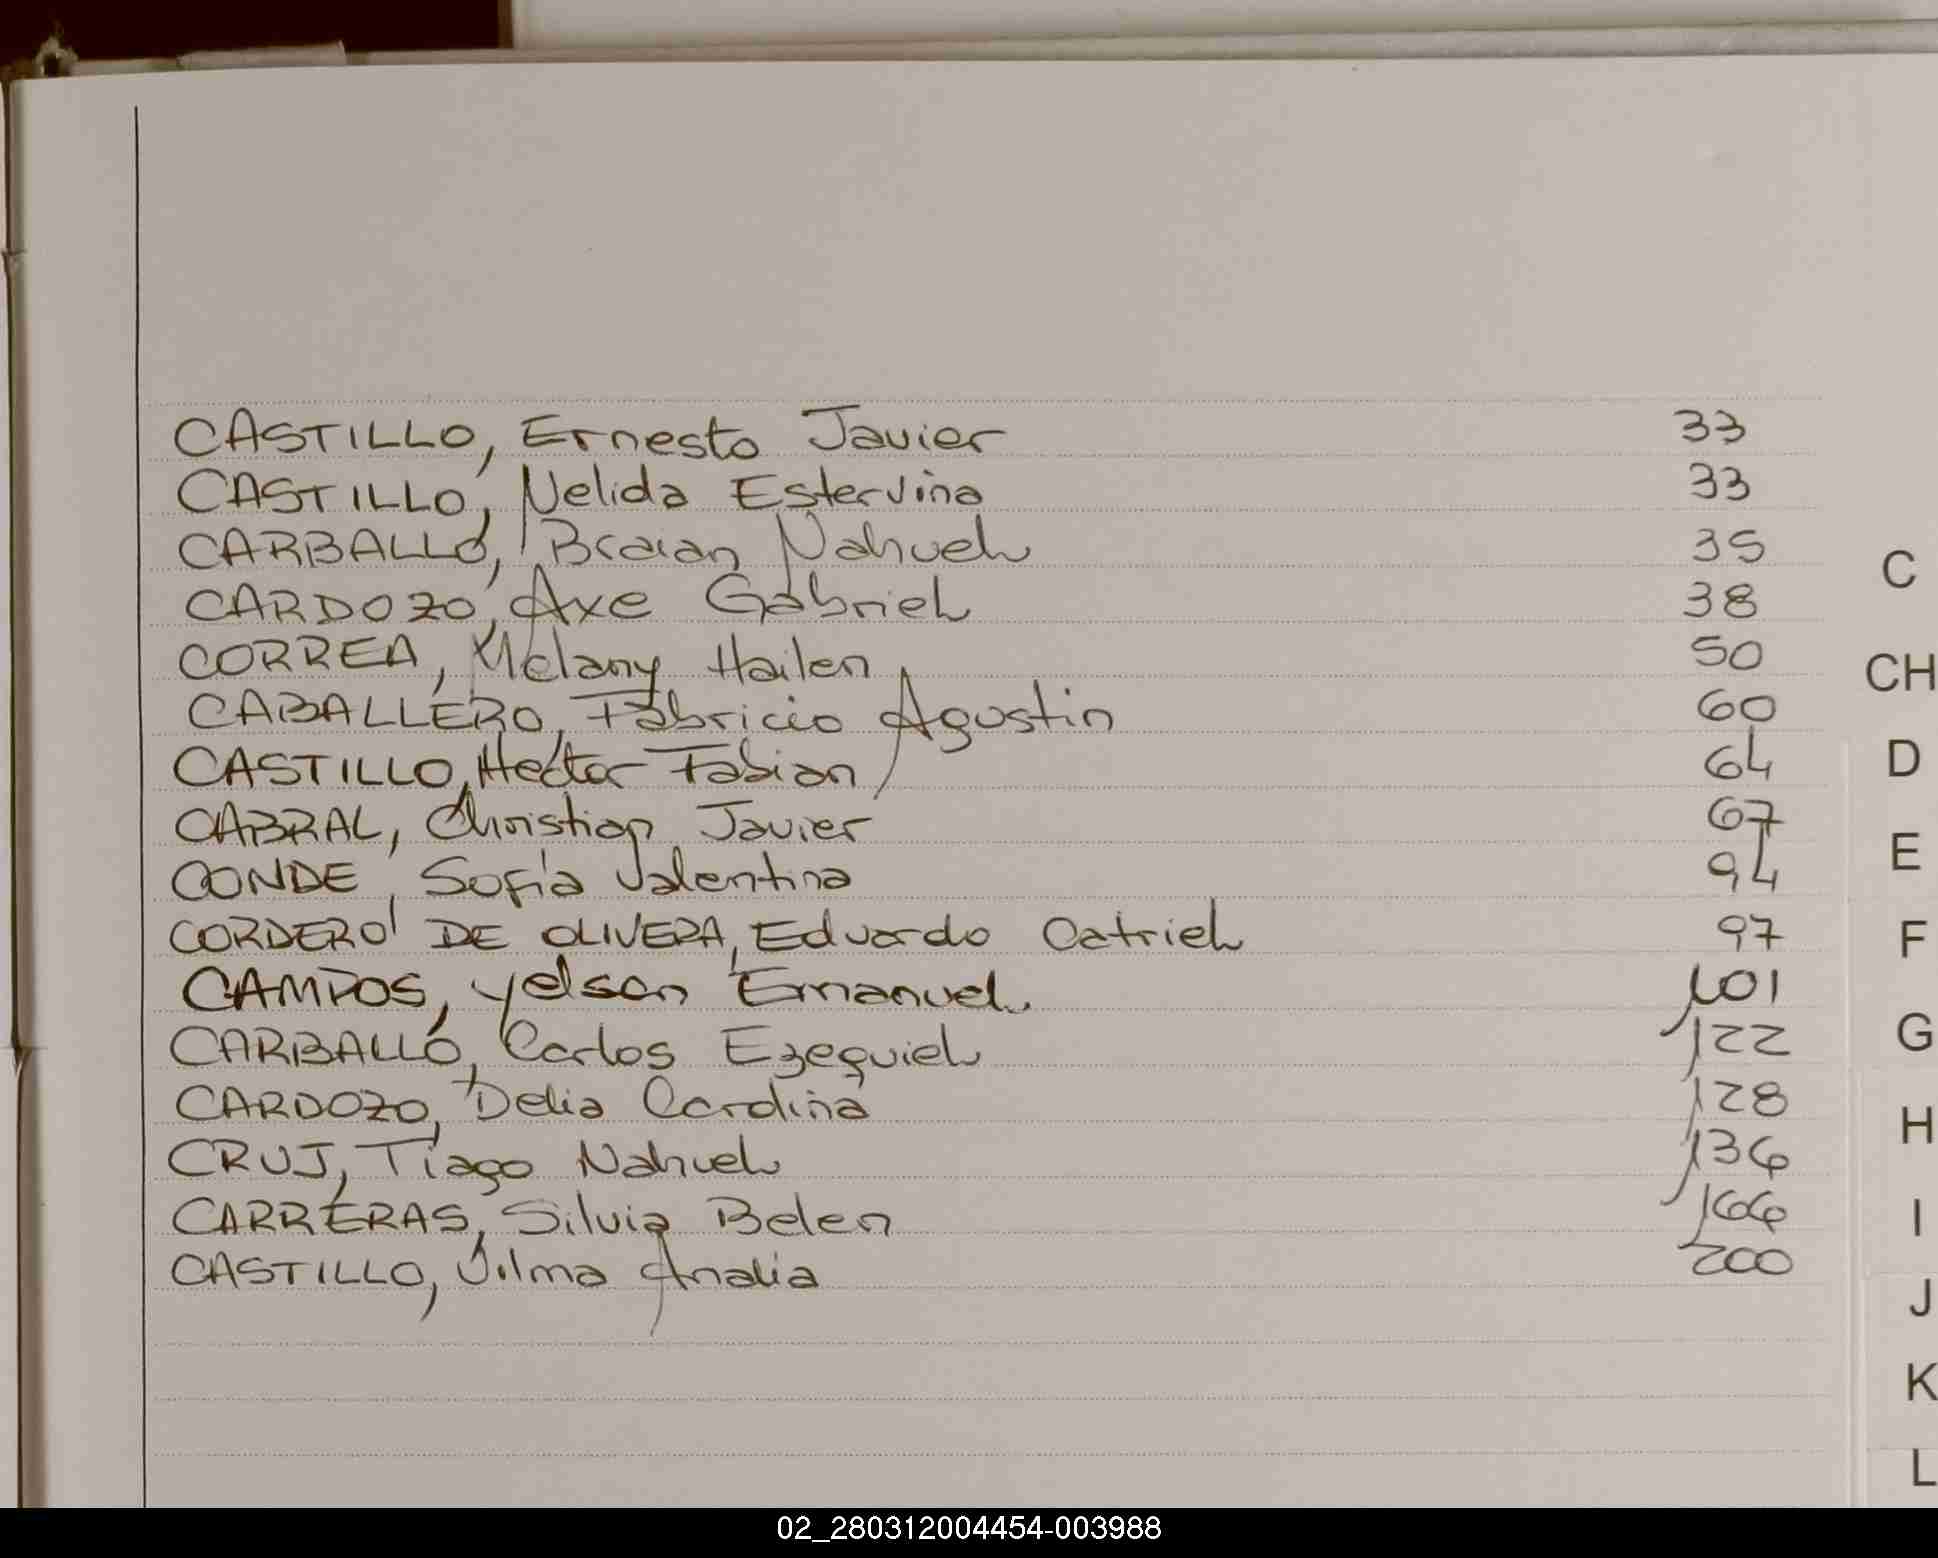 CASTILLO, Ernesto Javier 33
CASTILLO, Nelida Estervina 33
CARBALLO, Braian Nahuel 35
CARDOZO, Axe Gabriel 38
CORREA, Melany Hailen 50
CABALLERO, Fabricio Agustin 60
CASTILLO, Hector Fabian 64
CABRAL, Christian Javier 67
CONDE, Sofía Valentina 94
CORDERO DE OLIVERA, Eduardo Catriel 97
CAMPOS, Yelson Emanuel 101
CARBALLO, Carlos Ezequiel 122
CARDOZO, Delia Carolina 128
CRUJ, Tiago Nahuel 136
CARRERAS, Silvia Belen 166
CASTILLO, Vilma Analia 200
C
CH
D
E
F
G
H
I
J
K
L
02_280312004454-003988